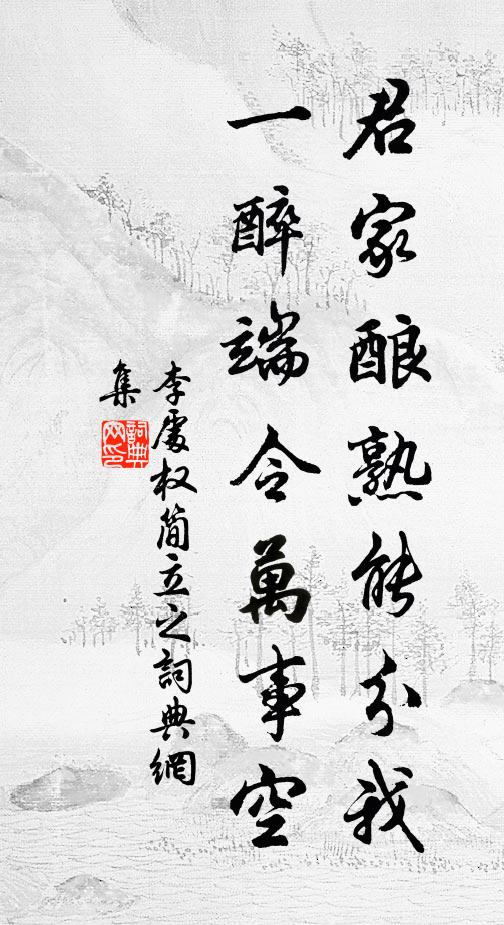 君家酿熟能分我
一醉端令萬事空
李處权简立之詞典網
集
詞典
网印